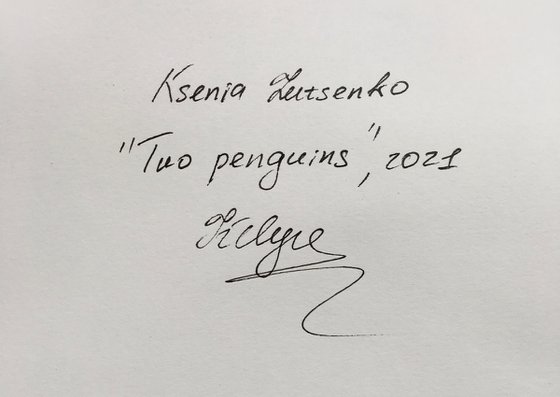 Ksenia Lutsenko
"Two penguins", 2021